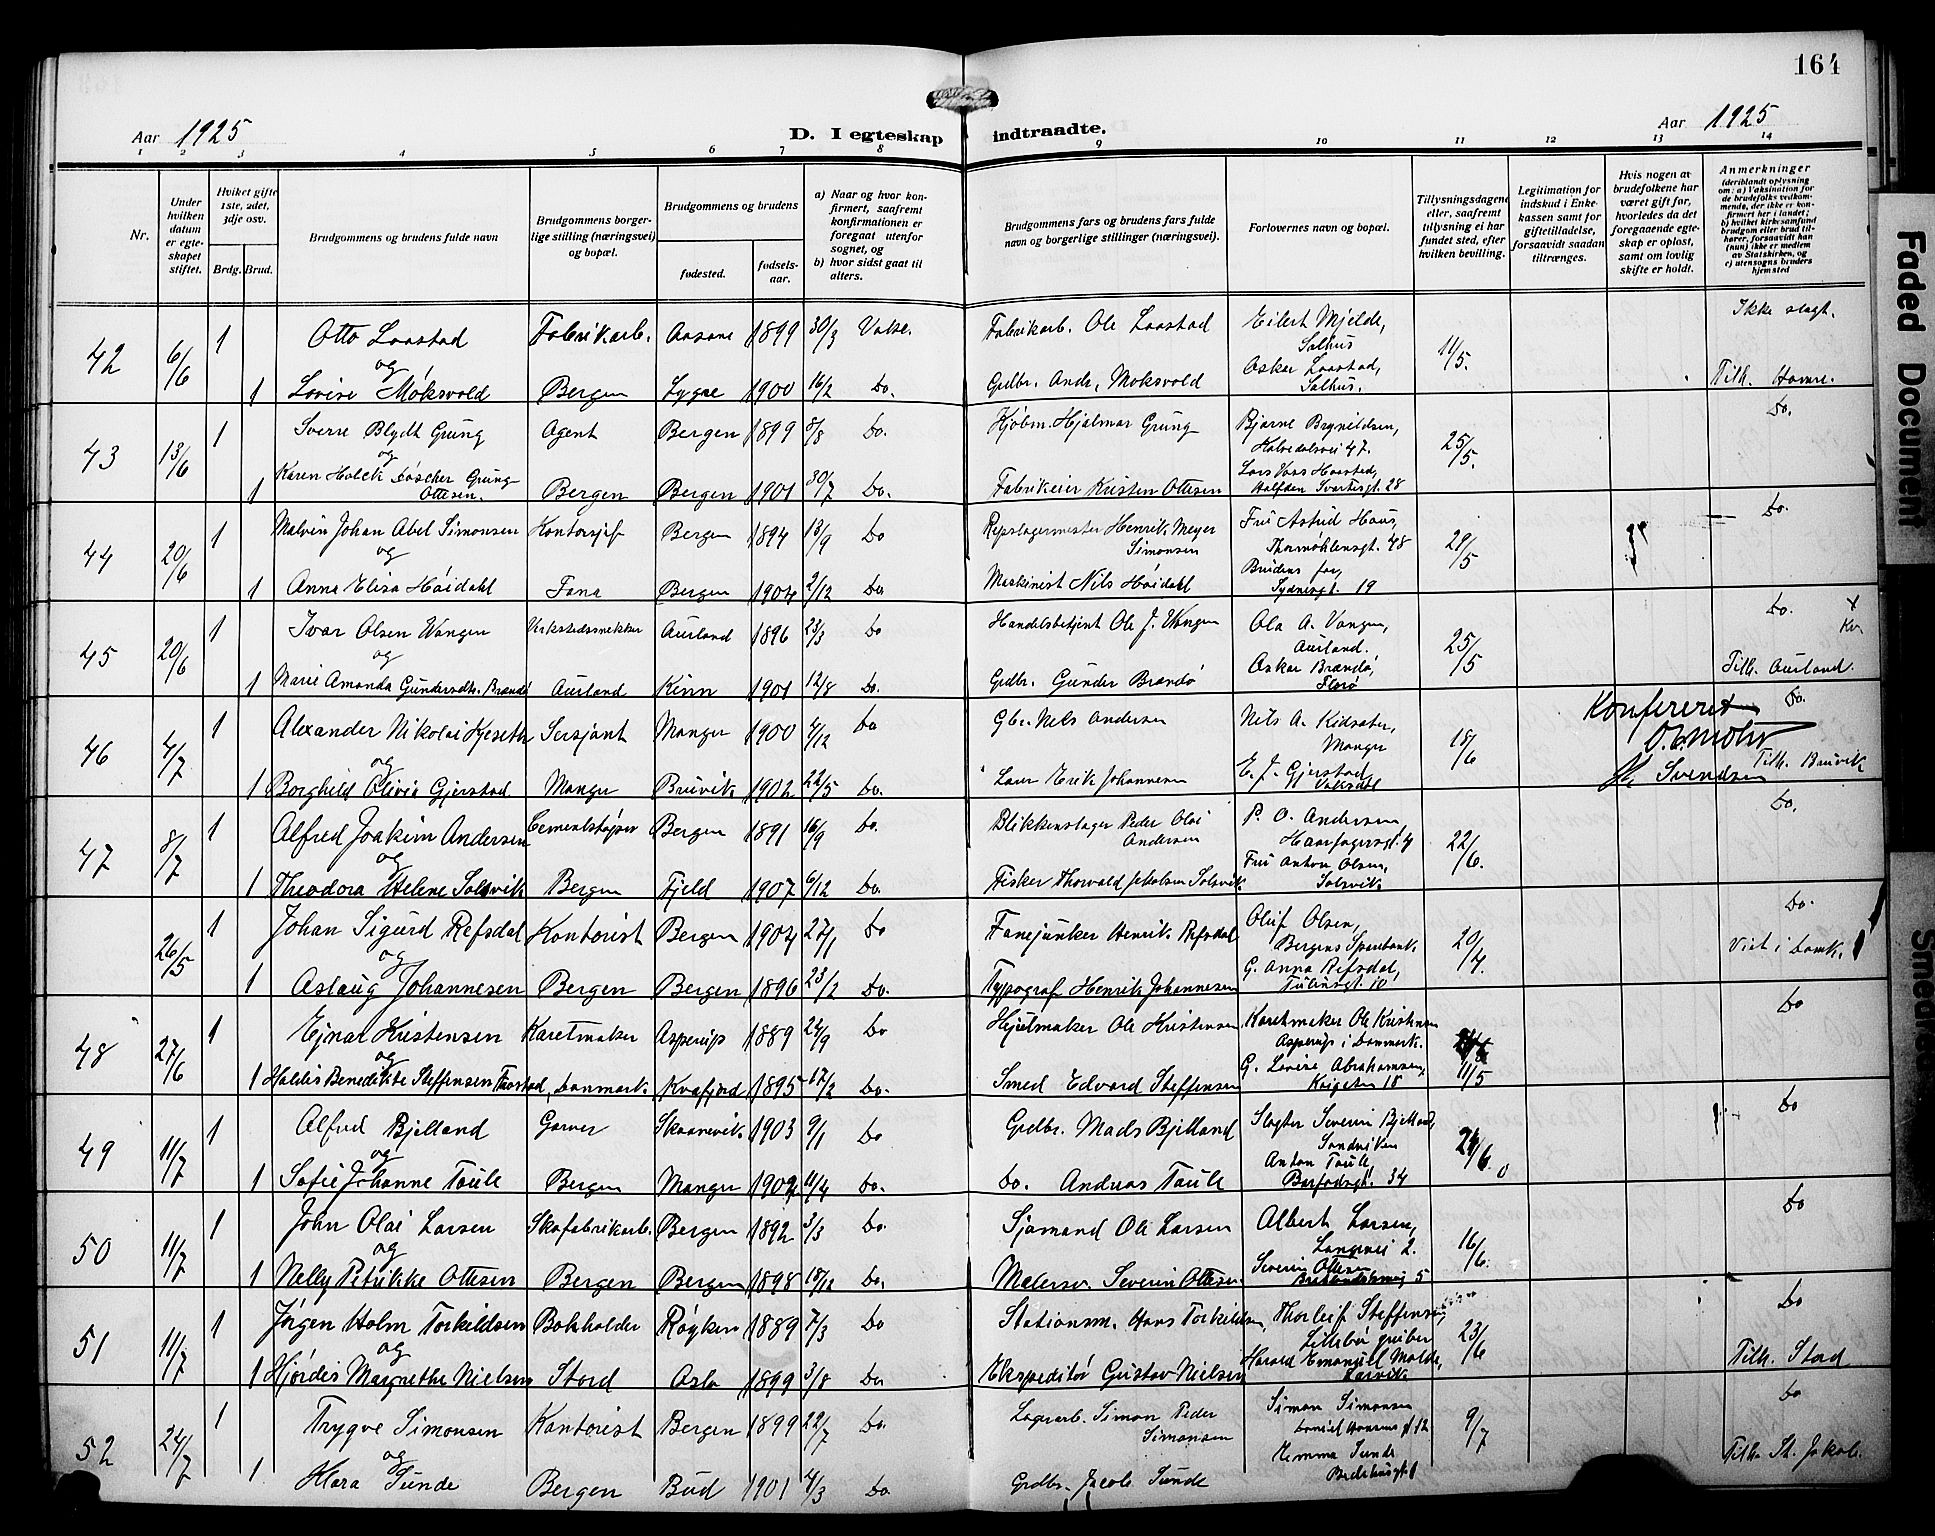 164
Aar 1925
D. I egteskap indtraadte.
Aar 1925
1 2 3 4 5 6 7 8 9 10 11 12 13 14
Nr.
Under hvilken datum er egteskapet stiftet.
Hvilket gifte 1ste, 2det, 3dje osv.
Brdg. Brud.
Brudgommens og brudens fulde navn
Brudgommens borgerlige stilling (næringsvei) og bopæl.
Brudgommens og brudens
fødested. fødselsaar.
a) Naar og hvor konfirmert, saafremt konfirmationen er foregaat utenfor sognet, og
b) hvor sidst gaat til alters.
Brudgommens fars og brudens fars fulde navn og borgerlige stillinger (næringsvei).
Forlovernes navn og bopæl.
Tillysningsdagene eller, saafremt tillysning ei har fundet sted, efter hvilken bevilling.
Legitimation for indskud i Enkekassen samt for giftetilladelse, forsaavidt saadan tiltrænges.
Hvis nogen av brudefolkene har været gift før, hvorledes da det foregaaende egteskap er opløst, samt om lovlig skifte er holdt.
Anmerkninger (deriblandt oplysning om: a) Vaksination for de brudefolks vedkommende, der ikke er konfirmert her i landet; b) hvilket kirkesamfund brudgom eller brud tilhører, forsaavidt han (hun) ikke er medlem av Statskirken, og c) utensogns bruders hjemsted
42 6/6 1 Otto Laastad Fabrikarb. Aasane 1899 30/3 Vakse. Fabrikarb. Ole Laastad Eilert Mjelde, Salhus 11/5. Ikke slagt.
og
1 Lovise Moksvold Bergen Lygre 1900 16/2 Do. Grdbr. Andr. Moksvold Oskar Laastad, Salhus. Tilh. Hamre.
43 13/6 1 Sverre Blydt Grung Agent Bergen 1899 8/8 Do. Kjøbm. Hjalmar Grung Bjarne Brynildsen, Kalvedalsvei 47. 25/5. Do.
og
1 Karen Holck Løscher Grung Ottesen. Bergen Bergen 1901 30/7 Do. Fabrikeier Kristen Ottesen Halfdan Svartesgt. 28
44 20/6 1 Malvin Johan Abel Simonsen Kontorsjef Bergen 1894 13/9 Do Repslagermester Henrik Meyer Simonsen Fru Astrid Haus, Thormøhlensgt. 48 29/5 Do.
og
1 Anna Elisa Høidahl Fana Bergen 1904 2/12 Do Maskinist Nils Høidahl Brudens far, Sydnesgt. 19
45 20/6 1 Ivar Olsen Wangen Verkstedssnekker Aurland 1896 23/3 Do Handelsbetjent Ole J. Wangen Ola A. Vangen, Aurland. 25/5 Do. x
og
1 Marie Amanda Gundersdtr. Brandø Aurland Kinn 1901 12/8 Do. Grdbr. Gunder Brandø Oskar Brandø, Florø Tilh. Aurland.
46 4/7 1 Alexander Nikolai Hjeseth Sersjant Manger 1900 4/12 Do Gbr. Nels Andersen Nils A. Kidsater, Manger 18/6 Konfereret Do.
og
1 Borghild Olivia Gjerstad. Manger Bruvik 1902 22/5 Do. Erik Johannesen E. J. Gjerstad, Vaksdal Svendsen Tilh. Bruvik
47 8/7 1 Alfred Joakim Andersen Cementstøper Bergen 1891 16/9 Do. Blikkenslager Peder Olai Andersen P. O. Andersen, Haarfagersgt. 4 22/6. Do.
og
1 Theodora Helene Solsvik Bergen Fjeld 1907 6/12 Do. Fisker Thorvald Jakobsen Solsvik Fru Anton Olsen, Solsvik
26/5 1 Johan Sigurd Refsdal Kontorist Bergen 1904 27/1 Do Fanejunker Henrik Refsdal Oluf Olsen, Bergens Sparebank 20/4. Do.
og Viet i Domk.
1 Aslaug Johannesen Bergen Bergen 1896 23/2 Do. Typograf Henrik Johannesen G. Anna Refsdal, Tulinsgt. 10
48 27/6 1 Ejnar Kristensen Karetmaker Asperup 1889 24/9 Do Hjulmaker Ole Kristensen Karetmaker Ole Kristensen Asperup i Danmark. 11/5 Do
og
1 Haldis Benedikte Steffensen Danmark Kvæfjord 1895 17/2 Do. Smed Edvard Steffensen G. Lovise Abrahamsen, Krigeten 18
49 11/7 1 Alfred Bjelland Garver Skaanevik. 1903 9/1 Do Grdbr. Mads Bjelland Slagter Severin Bjelland, Sandviken 24/6. Do
og
1 Sofie Johanne Toule Bergen Manger 1904 11/4 Do. Do. Andreas Toule Anton Toule 34
50 11/7 1 John Olai Larsen Skofabrikarb. Bergen 1892 3/3 Do. Sjømand Ole Larsen Albert Larsen, Langevei 2. 16/6. Do
og
1 Nelly Petrikke Ottesen Bergen Bergen 1898 18/12 Do. Malersv. Severin Ottesen. Severin Ottesen 5
51 11/7 1 Jørgen Holm Torkildsen Bokholder Røyken 1889 7/3 Do Stationsm. Hans Torkildsen, Thorleif Steffensen, Lillebø gruber 23/6 Do
og
1 Hjørdis Margrethe Nielsen Stord Oslo 1899 3/8 Do Ekspeditør Gustav Nielsen Harald Emanuell Molde, Larvik Tilh. Stord
52 24/7 1 Trygve Simonsen Kontorist Bergen 1899 22/7 Do. Lagerarb. Simon Peder Simonsen Simon Simonsen Daniel Hansens gt 12 9/7 Do
og
1 Klara Sunde Bergen Bud 1901 4/3 Do Grdbr. Jacob Sunde Hemma Sunde Tilh. St. Jakob.
Faded Document
Smeared